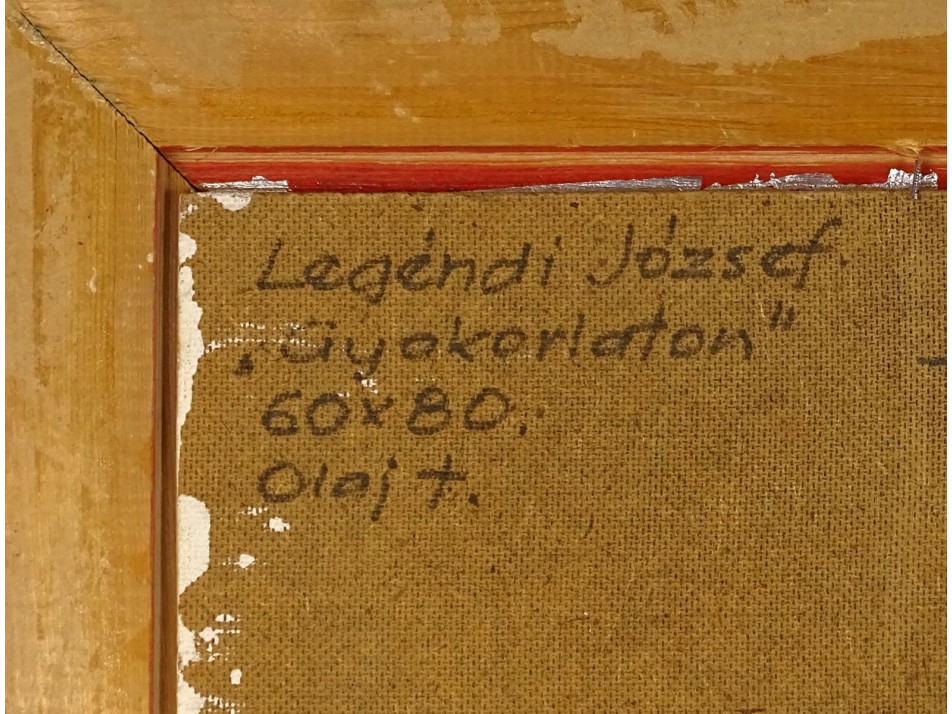 Legéndi József.
„Gyakorlaton"
60x80.
Olaj t.